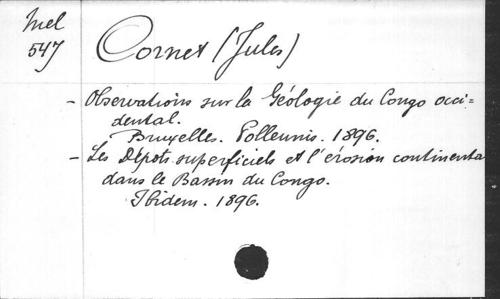 Mel
547
Cornet (Jules)
- Observations sur la Géologie du Congo occi=
dental.
Bruxelles. Polleunis. 1896.
- Les Dépots superficiels et l'érosion continenta
dans le Bassin du Congo.
Ibidem. 1896.